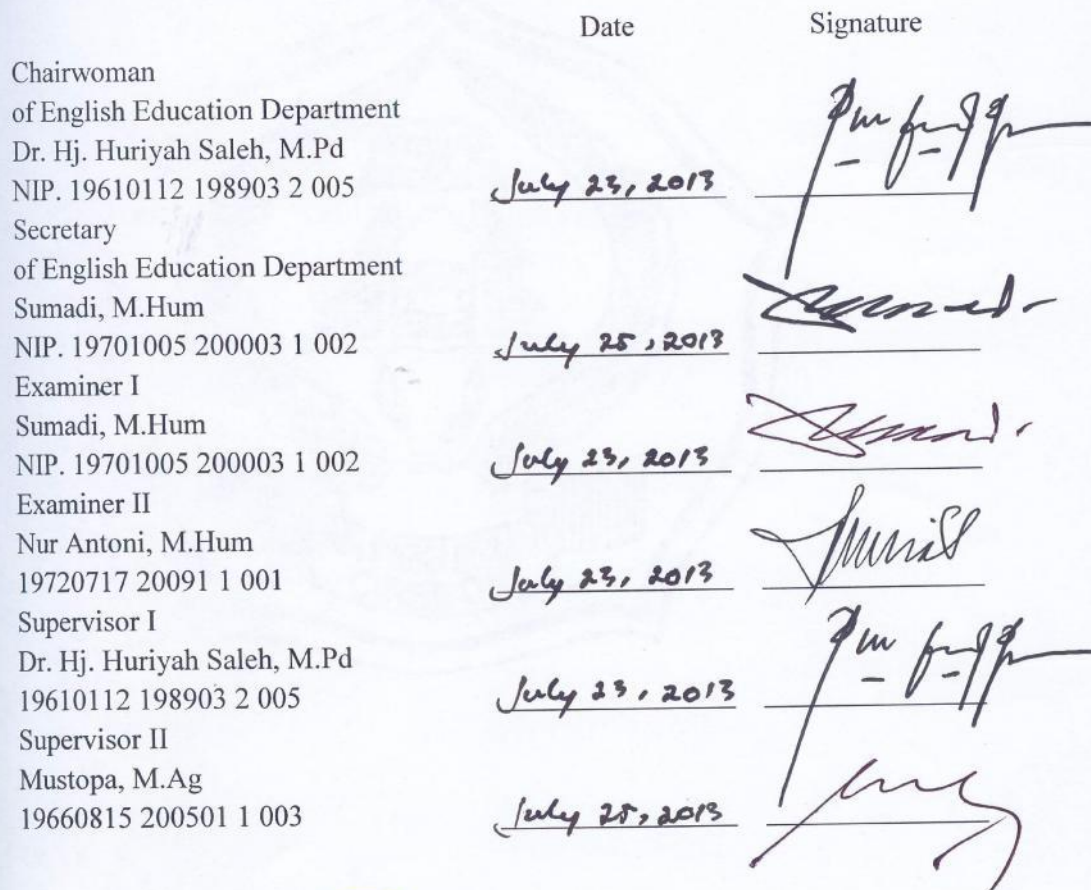 Date Signature
Chairwoman
of English Education Department
Dr. Hj. Huriyah Saleh, M.Pd
NIP. 19610112 198903 2 005 July 23, 2013
Secretary
of English Education Department
Sumadi, M.Hum
NIP. 19701005 200003 1 002 July 25, 2013
Examiner I
Sumadi, M.Hum
NIP. 19701005 200003 1 002 July 23, 2013
Examiner II
Nur Antoni, M.Hum
19720717 20091 1 001 July 23, 2013
Supervisor I
Dr. Hj. Huriyah Saleh, M.Pd
19610112 198903 2 005 July 23, 2013
Supervisor II
Mustopa, M.Ag
19660815 200501 1 003 July 25, 2013